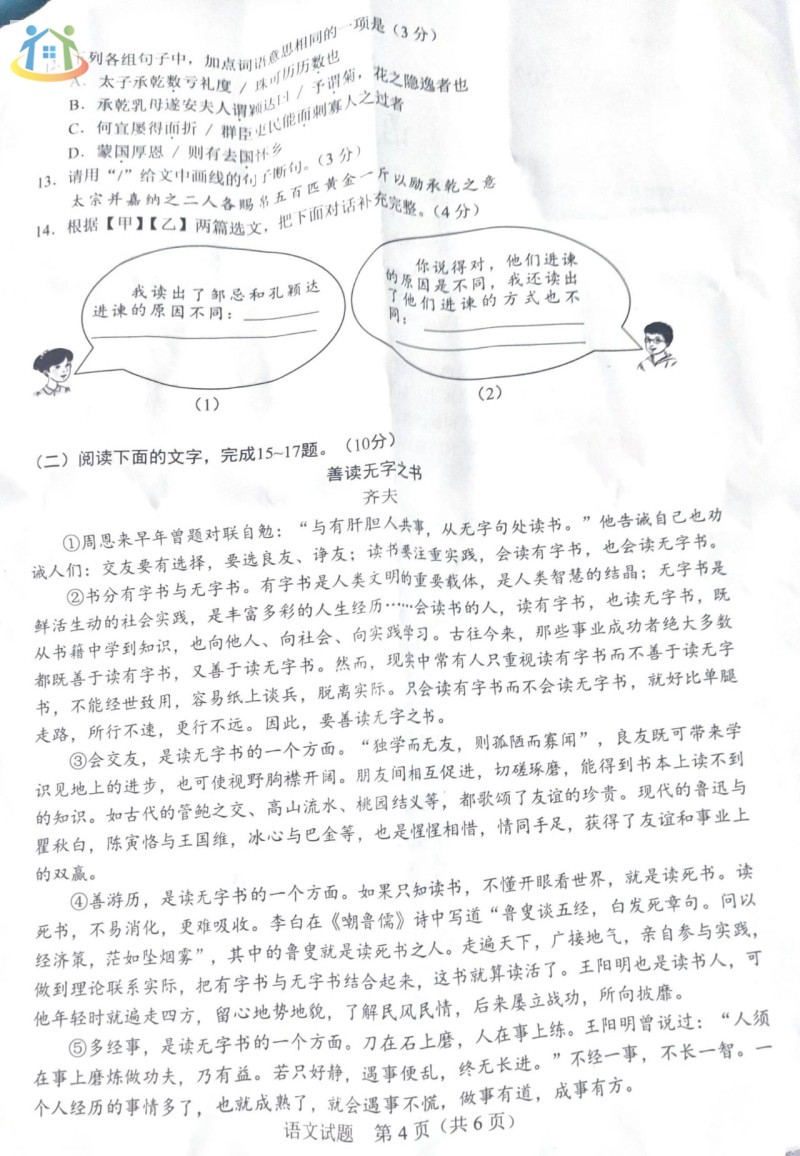 下列各组句子中，加点词语意思相同的一项是（3分）
A．太子承乾数亏礼度 / 珠可历历数也
B．承乾乳母遂安夫人谓颖达曰 / 予谓菊，花之隐逸者也
C．何宜屡得面折 / 群臣吏民能面刺寡人之过者
D．蒙国厚恩 / 则有去国怀乡
13．请用“/”给文中画线的句子断句。（3分）
太宗并嘉纳之二人各赐帛五百匹黄金一斤以励承乾之意
14．根据【甲】【乙】两篇选文，把下面对话补充完整。（4分）
我读出了邹忌和孔颖达
进谏的原因不同：
（1）
你说得对，他们进谏
的原因是不同，我还读出
了他们进谏的方式也不
同：
（2）
（二）阅读下面的文字，完成15~17题。（10分）
善读无字之书
齐夫
①周恩来早年曾题对联自勉：“与有肝胆人共事，从无字句处读书。”他告诫自己也劝
诫人们：交友要有选择，要选良友、诤友；读书要注重实践，会读有字书，也会读无字书。
②书分有字书与无字书。有字书是人类文明的重要载体，是人类智慧的结晶；无字书是
鲜活生动的社会实践，是丰富多彩的人生经历……会读书的人，读有字书，也读无字书，既
从书籍中学到知识，也向他人、向社会、向实践学习。古往今来，那些事业成功者绝大多数
都既善于读有字书，又善于读无字书。然而，现实中常有人只重视读有字书而不善于读无字
书，不能经世致用，容易纸上谈兵，脱离实际。只会读有字书而不会读无字书，就好比单腿
走路，所行不速，更行不远。因此，要善读无字之书。
③会交友，是读无字书的一个方面。“独学而无友，则孤陋而寡闻”，良友既可带来学
识见地上的进步，也可使视野胸襟开阔。朋友间相互促进，切磋琢磨，能得到书本上读不到
的知识。如古代的管鲍之交、高山流水、桃园结义等，都歌颂了友谊的珍贵。现代的鲁迅与
瞿秋白，陈寅恪与王国维，冰心与巴金等，也是惺惺相惜，情同手足，获得了友谊和事业上
的双赢。
④善游历，是读无字书的一个方面。如果只知读书，不懂开眼看世界，就是读死书。读
死书，不易消化，更难吸收。李白在《嘲鲁儒》诗中写道“鲁叟谈五经，白发死章句。问以
经济策，茫如坠烟雾”，其中的鲁叟就是读死书之人。走遍天下，广接地气，亲自参与实践，
做到理论联系实际，把有字书与无字书结合起来，这书就算读活了。王阳明也是读书人，可
他年轻时就遍走四方，留心地势地貌，了解民风民情，后来屡立战功，所向披靡。
⑤多经事，是读无字书的一个方面。刀在石上磨，人在事上练。王阳明曾说过：“人须
在事上磨炼做功夫，乃有益。若只好静，遇事便乱，终无长进。”不经一事，不长一智。一
个人经历的事情多了，也就成熟了，就会遇事不慌，做事有道，成事有方。
语文试题 第4页（共6页）